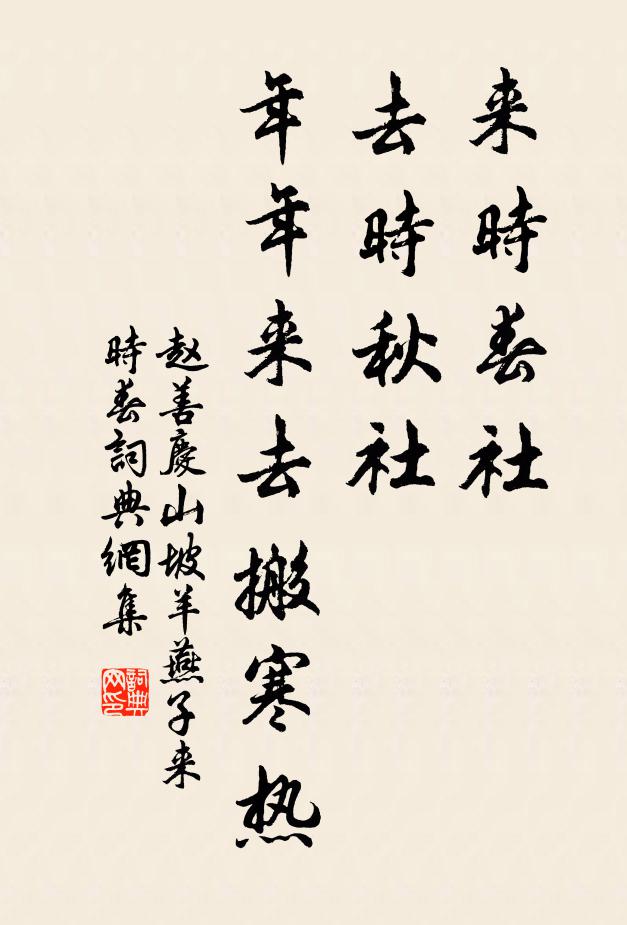 来時春社
去時秋社
年年来去搬寒热
赵善慶山坡羊燕子来
時春詞典網集
詞典
网印